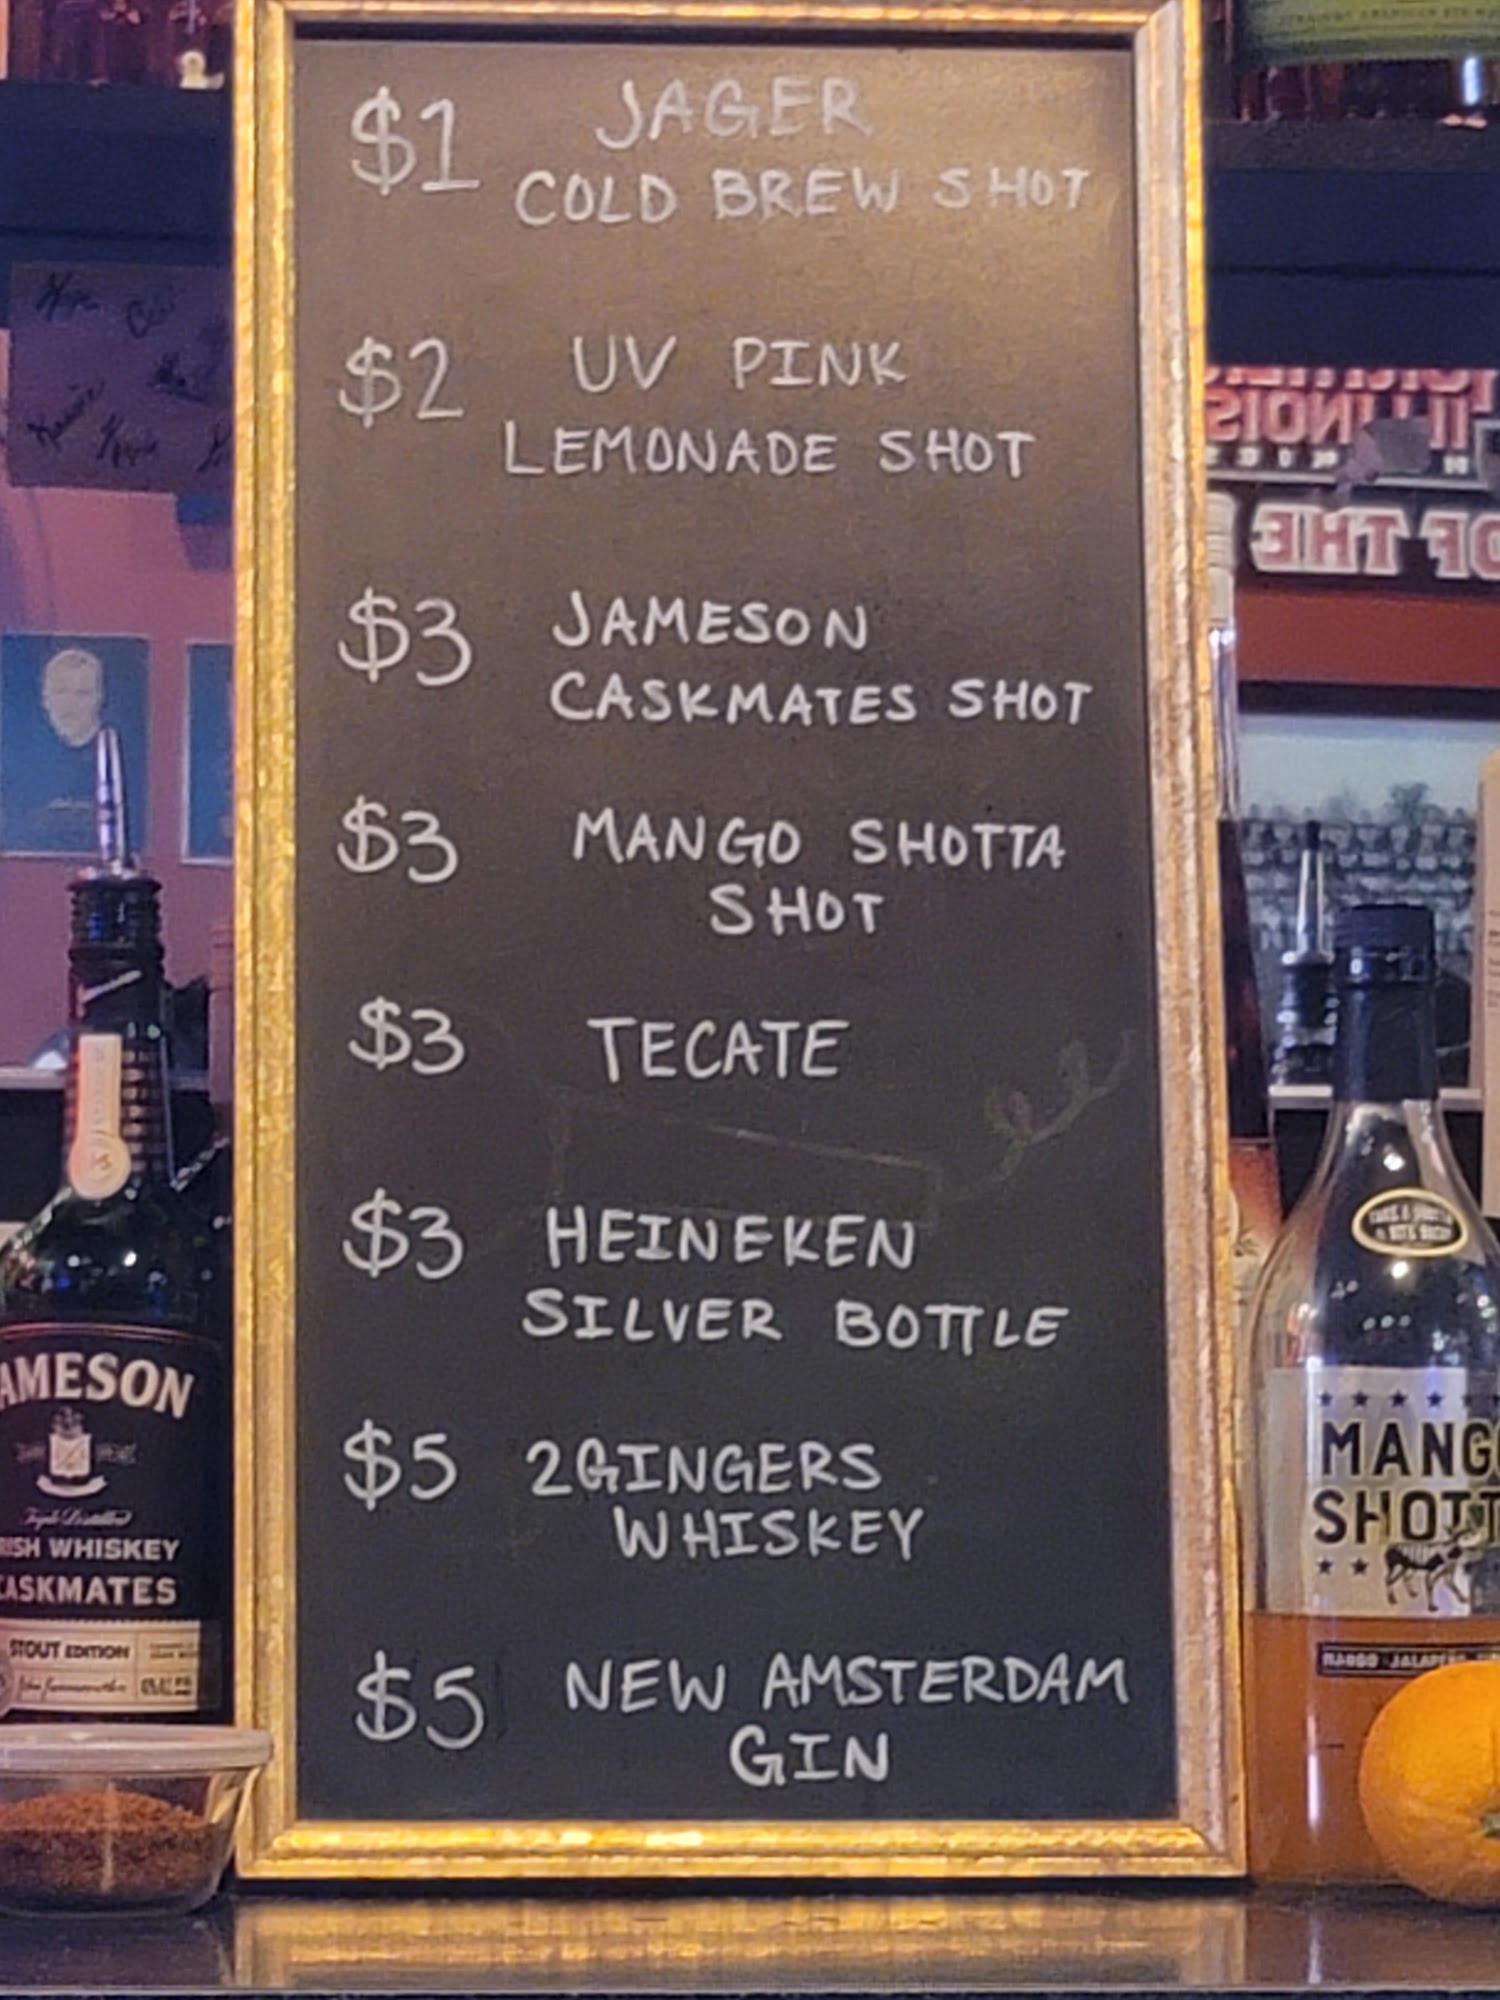 $1 JAGER
COLD BREW SHOT
$2 UV PINK
LEMONADE SHOT
$3 JAMESON
CASKMATES SHOT
$3 MANGO SHOTTA
SHOT
$3 TECATE
$3 HEINEKEN
SILVER BOTTLE
$5 2GINGERS
WHISKEY
$5 NEW AMSTERDAM
GIN
AMESON
Triple Distilled
ISH WHISKEY
CASKMATES
STOUT EDITION
ILLINOIS
OF THE
MANGO
SHOTT
MANGO JALAPEÑO